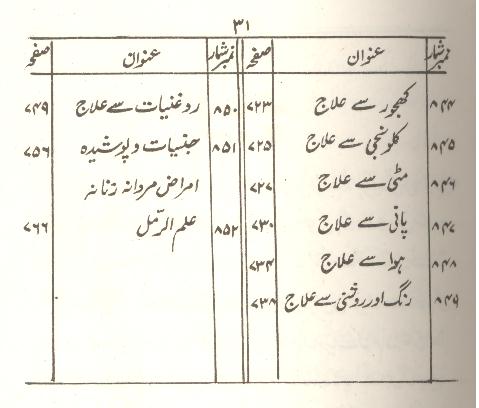 ۳۱
نمبر شمار عنوان صفحہ نمبر شمار عنوان صفحہ
۸۴۴ کھجور سے علاج ۷۲۳
۸۴۵ کلونجی سے علاج ۷۲۵
۸۴۶ مٹی سے علاج ۷۲۷
۸۴۷ پانی سے علاج ۷۳۰
۸۴۸ ہوا سے علاج ۷۳۴
۸۴۹ رنگ اور روشنی سے علاج ۷۳۸
۸۵۰ روغنیات سے علاج ۷۴۹
۸۵۱ جنسیات و پوشیدہ ۷۵۶
امراض مردانہ زنانہ
۸۵۲ علم الرّمل ۷۶۶